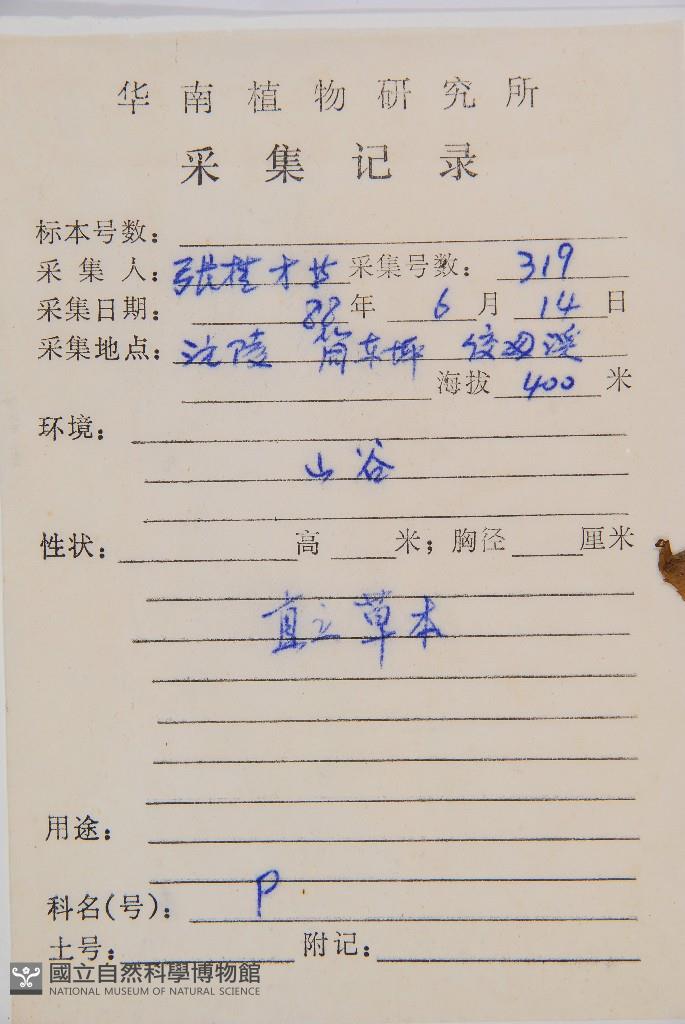 华南植物研究所
采集记录
标本号数：
采集人：张桂才等 采集号数：319
采集日期：88年6月14日
采集地点：沅陵 筒车坪
海拔400米
环境：
山谷
性状： 高 米；胸径 厘米
直立草本
用途：
科名(号)：P
土号： 附记：
國立自然科學博物館
NATIONAL MUSEUM OF NATURAL SCIENCE